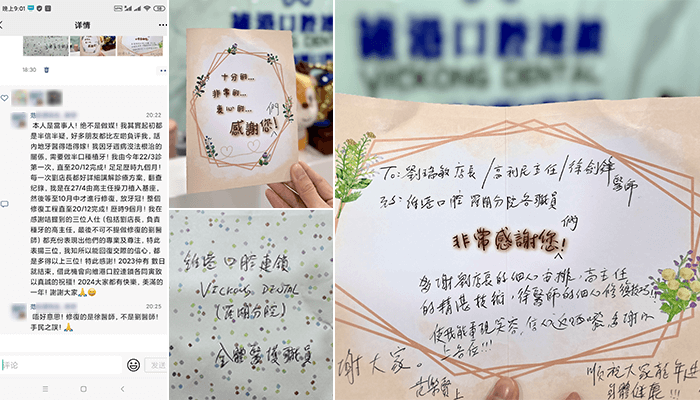 晚上9:01
详情
18:30
20:22
本人是當事人！他不是做媒！我其實起初都
是半信半疑，好多朋友都比左啲負评我，話
內地牙醫得啱得㗎！我因牙週病沒法根治的
關係，需要做半口種植牙！我由今年22/3診
第一次，直至20/12完成！足足歷時九個月！
每一次劉店長都好詳細講解診療方案，翻查
紀錄，我是在27/4由高主任操刀植入基座，
然後等至10月中才進行修復，放牙冠！整個
修復工程直至20/12完成！歷時9個月！我在
感謝結識到的三位人仕（包括劉店長，負責
種牙的高主任，最後不可不提做修復的劉醫
師）都充份表現出他們的專業及專注，特此
表揚三位，我知所以能回復交際的信心，都
是多得以上三位！特此感謝！2023仲有 數日
就結束，借此機會向維港口腔連鎖各同寅致
以真誠的祝福！2024大家都有快樂，美滿的
一年！謝謝大家
20:25
唔好意思！修復的是徐醫師，不是劉醫師！
手民之誤！
评论
发送
十分的...
非常的...
衷心的...
感謝您!
們
維港口腔連鎖
VICKONG DENTAL
(羅湖分院)
全體醫護職員
維港口腔連鎖
VICKONG DENTAL
To: 劉瑞敏店長/高利民主任/徐劍鋒
醫師
維港口腔羅湖分院各職員
們
非常感謝您!
多謝劉店長的細心安排，高主任
的精湛技術，徐醫師的細心修復技巧!!
使我能重現笑容，
上各位!!!
謝大家。
上
順祝大家龍年進
身體健康!!!